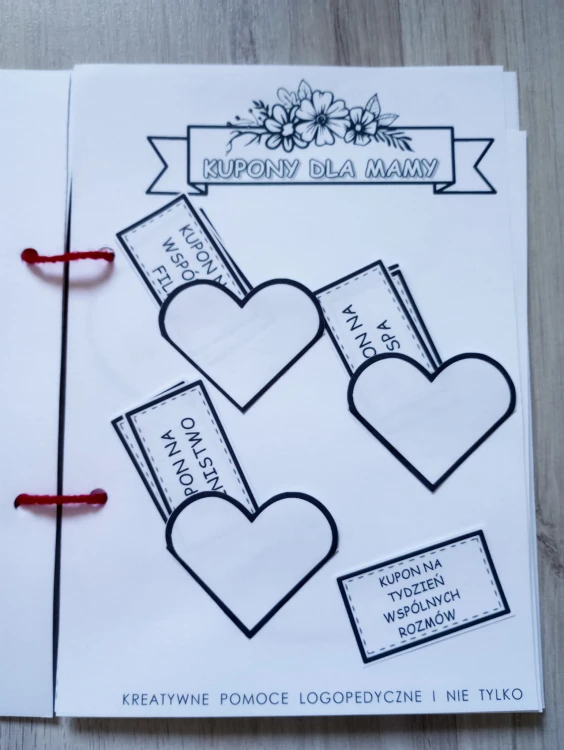 KUPONY DLA MAMY
KUPON NA
ON NA
SPA
PON NA
NISTWO
KUPON NA
TYDZIEŃ
WSPÓLNYCH
ROZMÓW
KREATYWNE POMOCE LOGOPEDYCZNE I NIE TYLKO